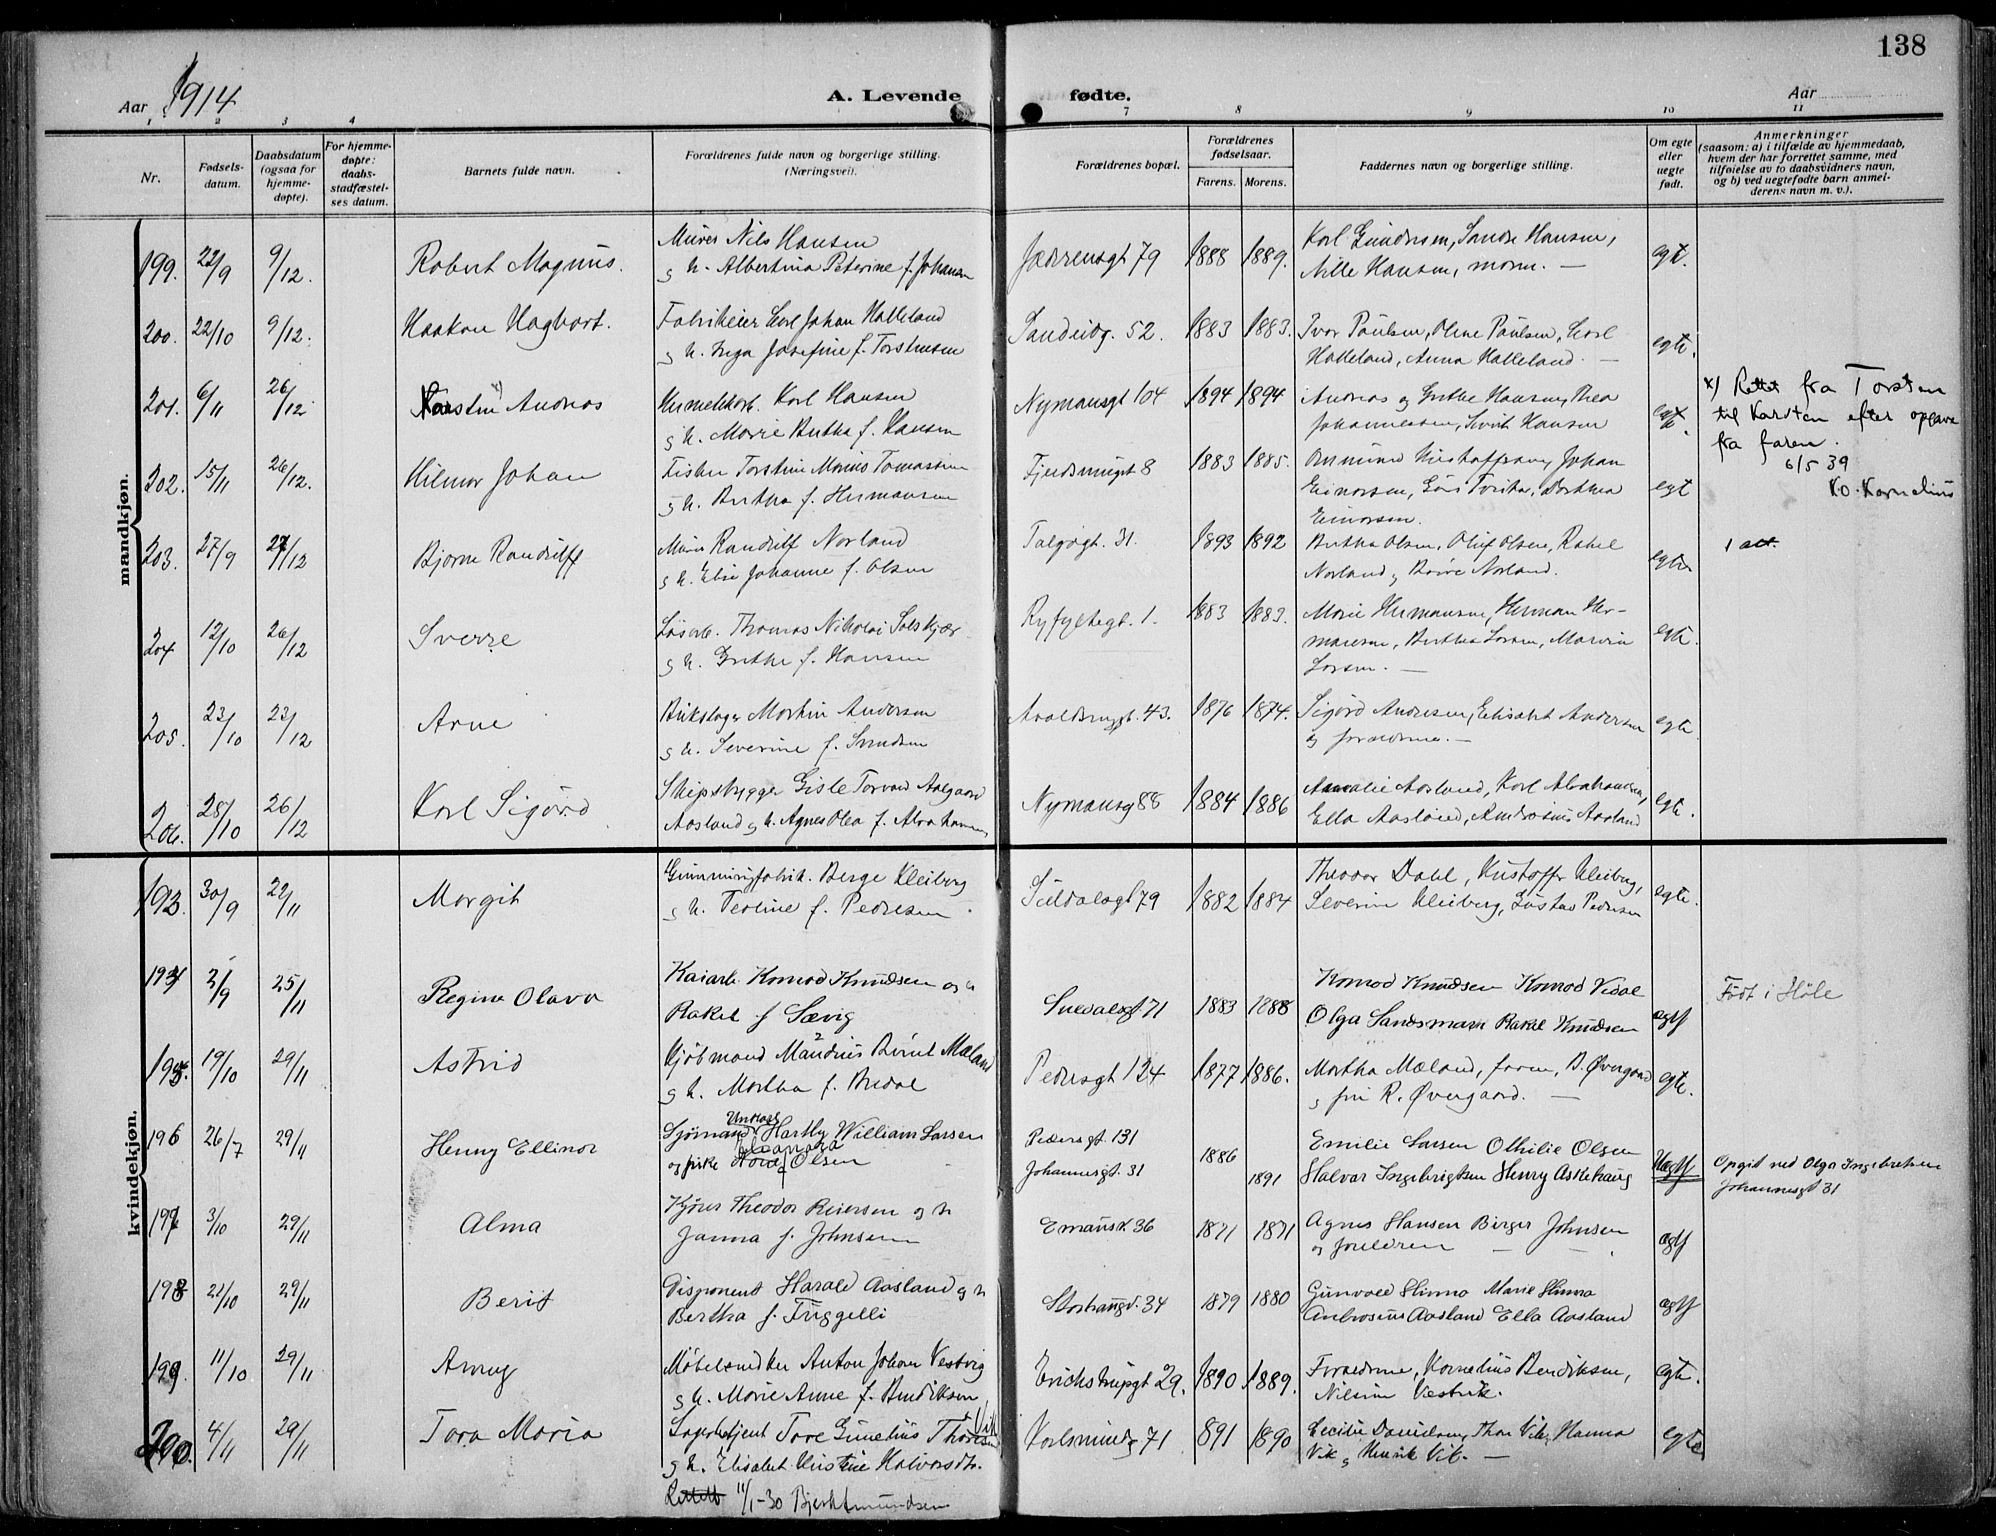 138
Aar 1914
A. Levende fødte.
Aar
1 2 3 4 7 8 9 10 11
Nr.
Fødsels-
datum.
Daabsdatum
(ogsaa for
hjemme-
døpte).
For hjemme-
døpte:
daabs-
stadfæstel-
ses datum.
Barnets fulde navn.
Forældrenes fulde navn og borgerlige stilling.
(Næringsvei).
Forældrenes bopæl.
Forældrenes
fødselsaar.
Farens. Morens.
Faddernes navn og borgerlige stilling.
Om egte
eller
uegte
født.
Anmerkninger
(saasom: a) i tilfælde av hjemmedaab,
hvem der har forrettet samme, med
tilføielse av to daabsvidners navn,
og b) ved uegtefødte barn anmel-
derens navn m. v.).
mandkjøn.
199. 22/9 9/12. Robert Magnus. Murer Nils Hansen 1888 1889. Karl Gundersen, Hansen, egt.
g h. Albertina Peterine f. Johansen Jædrensgt 79 Nille Hansen, moren. —
200. 22/10 9/12. Haakon Hagbart. Fabrikeier Carl Johan Halleland Sandeidg. 52. 1883 1883. Ivar Paulsen, Oline Paulsen, Carl egte.
g h. Inga Josefine f. Torstensen Halleland, Anna Halleland. —
201. 6/11 26/12 Karsten x) Andreas Hermetikarb. Karl Hansen Nymansgt 104 1894 1894 Andreas og Grethe Hansen, Thea egt.
g h. Marie Bertha f. Hansen Johannessen, Sivert Hansen
x) Rettet fra Torsten
til Karsten efter opgave
fra faren.
6/5 39
K.O. Kornelius
202. 15/11 26/12. Hilmar Johan Fisker Torstein Marius Tomassen 8 1883 1885. Johan egt
g h. Bertha f. Hermansen Einarsen, Dorthea
Einarsen.
203. 27/9 27/12 Bjarne Randulff Murer Randulf Norland Talgøgt. 31. 1893 1892 Bertha Olsen, Oluf Olsen, Rakel egte
g h. Elise Johanne f. Olsen Norland, Norland.
1 att.
204 12/10 26/12 Sverre Løsarb. Thomas Nikolai Solskjær Ryfylkegt. 1. 1883 1883. Marie Hermansen, Herman Her- egte.
g h. Grethe f. Hansen mansen, Bertha Larsen, Martin
Larsen. —
205. 23/10 23/12 Arne Martin Andersen 43. 1876 1874. Sigurd Andersen, Elisabet Andersen egte
g h. Severine f. Svendsen og forældrene. —
206. 28/10 26/12 Karl Sigurd Skipsbygger Gisle Torvald Aalgaard Nymansg 88 1884 1886 Amalie Aasland, Karl Abrahamsen, egte.
Aasland g h. Agnes Olea f. Abrahamsen Ella Aasland, Ambrosius Aasland
kvindekjøn.
193. 30/9 22/11 Margit Berge Kleiberg Suldalsgt 79 1882 1884 Theodor Dahl, Kristoffer Kleiberg, egte.
g h. Teoline f. Pedersen Severin Kleiberg, Gustav Pedersen
194 2/9 25/11 Regine Olava Kaiarb. Konrad Knudsen og h Suldalsgt 71 1883 1888 Konrad Knudsen Konrad Vidal ægtf
Rakel f Sævig Olga Sandsmark Rakel Knudsen
Født i Høle
195. 19/10 29/11 Astrid Kjøbmand Maudius Berint Mæland Pedersgt 124 1877 1886. Martha Mæland, faren, B. Øvergaard egte.
g h. Martha f. Bredal g fru R. Øvergaard. —
196 26/7 29/11 Henny Ellinor Sjømand Ungkarl Hartly William Larsen Pedersgt 131 1886 Emilie Larsen Othilie Olsen Uægtf
og pike Eleanora Olsen Johannesgt. 31 1891 Halvar Ingebrigtsen Henry Askehaug
Opgit ved Olga Ingebretsen
Johannesgt 31
197 3/10 29/11 Alma Kjører Theodor Reiersen og h Emausv. 36 1871 1871 Agnes Hansen Birger Johnsen ægtf
Janna f. Johnsen og foreldren —
198 21/10 29/11 Berit Disponent Harald Aasland og h Storhaugv. 34 1879 1880 Gunvald Slimo Marie Slimo ægtf
Bertha f. Friggelli Ambrosius Aasland Ella Aasland
199 11/10 29/11 Anny Møbelsnedker Anton Johan Vestvig 29. 1890 1889. Forældrene, Kornelius Bendiksen, egte.
g h. Marie Anne f. Bendiksen Nilsine Vestvik.
200. 4/11 29/11 Tora Maria Lagerbetjent Tore Gunelius Thorsen Vik Karlsmindeg 71 891 1890 Cecilie Danielsen, Thor Vik, Hanna egte
g h. Elisabet Kristine Halvorsdtr. Vik g Henrik Vik. —
Rettet 11/1-30 Bjerk Amundsen